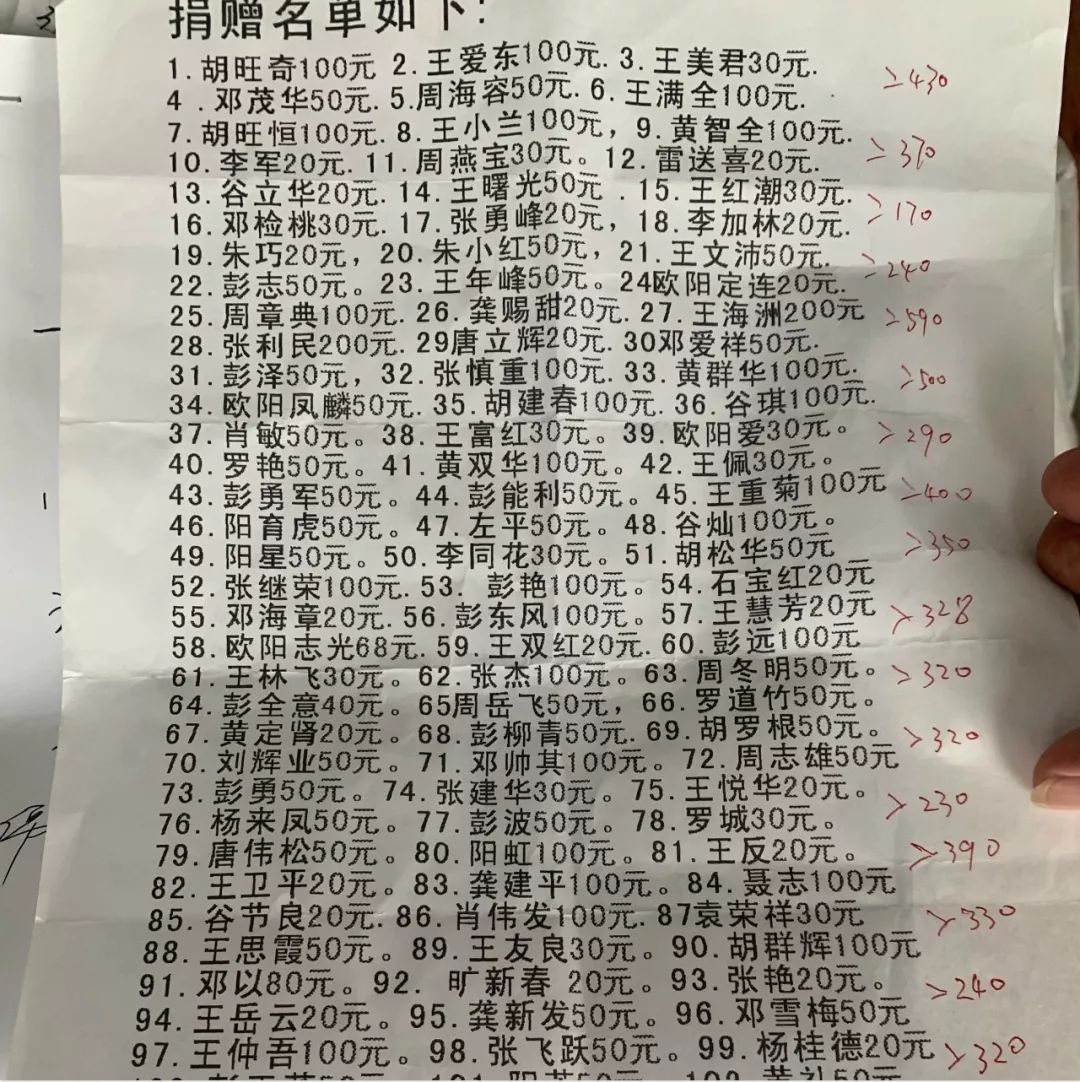 捐赠名单如下:
1.胡旺奇100元 2.王爱东100元. 3.王美君30元.
≥430
4 .邓茂华50元. 5.周海容50元. 6.王满全100元.
7.胡旺恒100元. 8.王小兰100元，9.黄智全100元.
10.李军20元. 11.周燕宝30元。12.雷送喜20元.
≥370
13.谷立华20元. 14.王曙光50元 .15.王红潮30元.
16.邓检桃30元. 17.张勇峰20元，18.李加林20元.
≥170
19.朱巧20元，20.朱小红50元，21.王文沛50元.
22.彭志50元。23.王年峰50元。24欧阳定连20元.
≥240
25.周章典100元. 26.龚赐甜20元. 27.王海洲200元
≥590
28.张利民200元. 29唐立辉20元. 30邓爱祥50元.
31.彭泽50元，32.张慎重100元. 33.黄群华100元.
≥500
34.欧阳凤麟50元. 35.胡建春100元. 36.谷琪100元.
37.肖敏50元。38.王富红30元。39.欧阳爱30元。
>290
40.罗艳50元。41.黄双华100元。42.王佩30元。
43.彭勇军50元。44.彭能利50元。45.王重菊100元
≥400
46.阳育虎50元。47.左平50元。48.谷灿100元。
49.阳星50元。50.李同花30元。51.胡松华50元
>350
52.张继荣100元. 53. 彭艳100元。54.石宝红20元
55.邓海章20元. 56.彭东风100元。57.王慧芳20元
>328
58.欧阳志光68元. 59.王双红20元. 60.彭远100元
61.王林飞30元。62.张杰100元。63.周冬明50元。
>320
64.彭全意40元。65周岳飞50元，66.罗道竹50元。
67.黄定肾20元。68.彭柳青50元. 69.胡罗根50元。
>320
70.刘辉业50元。71.邓帅其100元。72.周志雄50元
73.彭勇50元。74.张建华30元。75.王悦华20元。
>230
76.杨来凤50元。77.彭波50元。78.罗城30元。
79.唐伟松50元。80.阳虹100元。81.王反20元。
>390
82.王卫平20元。83.龚建平100元。84.聂志100元
85.谷节良20元. 86.肖伟发100元. 87袁荣祥30元
>330
88.王思霞50元。89.王友良30元。90.胡群辉100元
91.邓以80元。92. 旷新春 20元。93.张艳20元。
>240
94.王岳云20元。95.龚新发50元。96.邓雪梅50元
97.王仲吾100元。98.张飞跃50元。99.杨桂德20元
>320